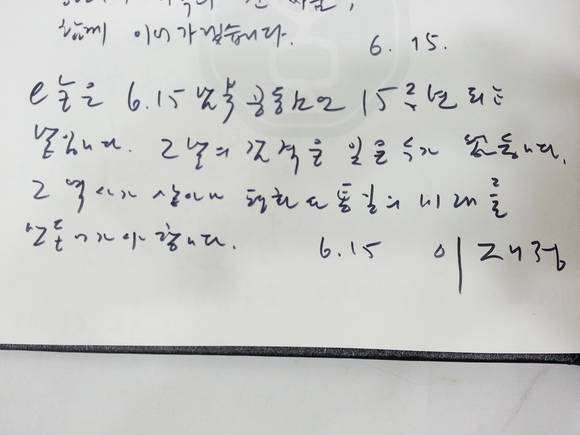 함께 이어가겠습니다.
6. 15.
오늘은 6.15 남북 공동선언 15주년 되는
날입니다. 그날의 감격을 잊을 수가 없습니다.
그 역사가 살아나 평화와 통일의 미래를
만들어가야 합니다.
6.15 이재정